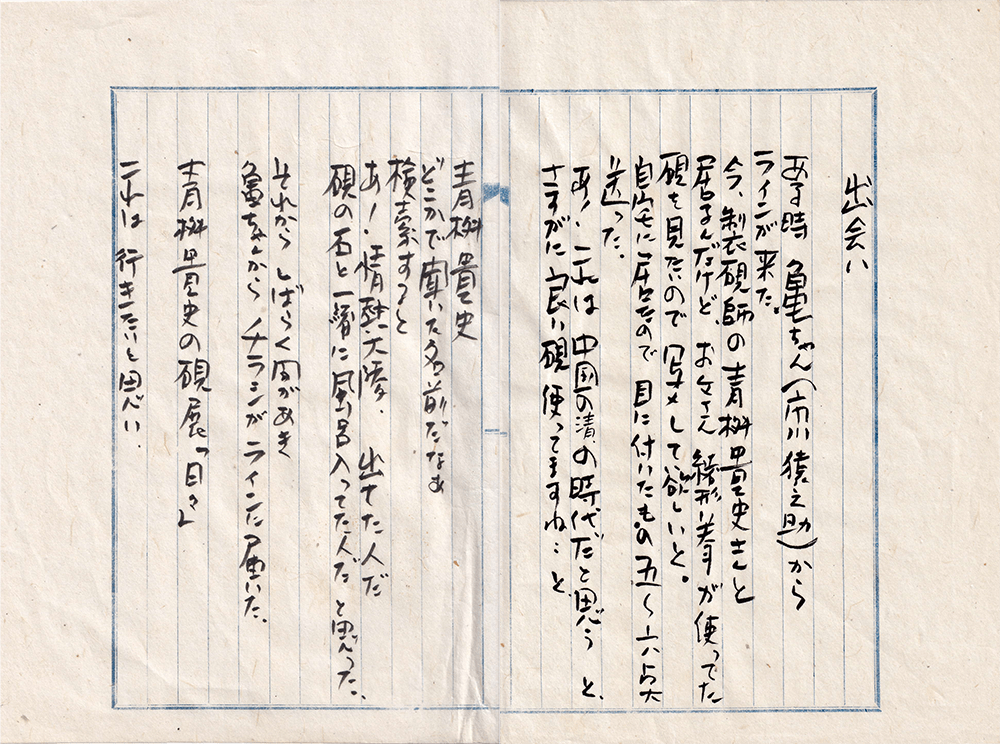 出会い
ある時 亀ちゃん(市川猿之助)から
ラインが来た。
今、製硯師の青栁貴史さんと
居るんだけど、お父さん 緒形拳が使ってた
硯を見たいので写メして欲しいと。
自宅に居たので目に付いたもの五〜六点
送った。
あ!これは中国の清の時代だと思うと、
さすがに良い硯使ってますね…と
青栁貴史
どこかで聞いた名前だなぁ
検索すると
あ!情熱大陸、出てた人だ
硯の石と一緒に風呂入ってた人だと思った、
それから しばらく間があき
亀ちゃんから チラシがラインに届いた、
青栁貴史の硯展「日々」
これは 行きたいと思い、